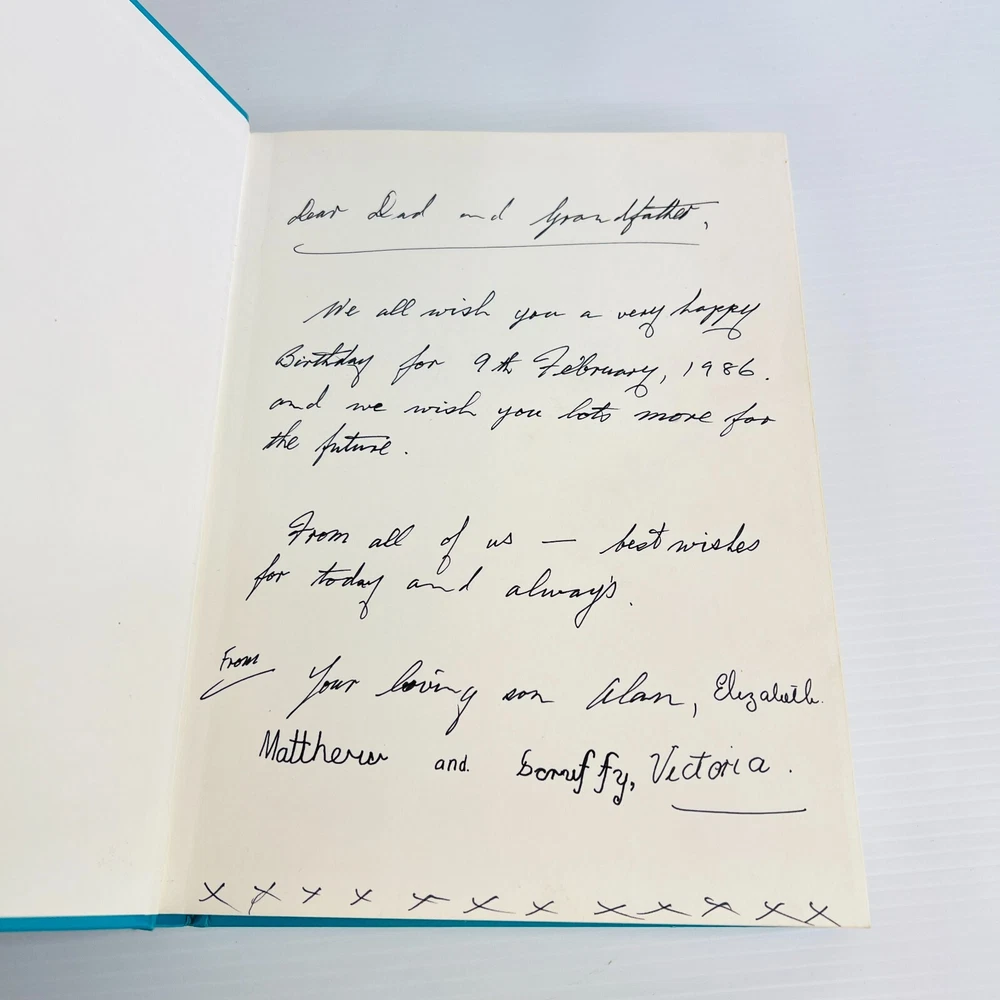 Dear Dad and Grandfather,
We all wish you a very happy
Birthday for 9th February, 1986.
and we wish you lots more for
the future.
From all of us — best wishes
for today and always.
From Your loving son Alan, Elizabeth.
Matthew and. Scruffy, Victoria.
x x x x x x x x x x x x